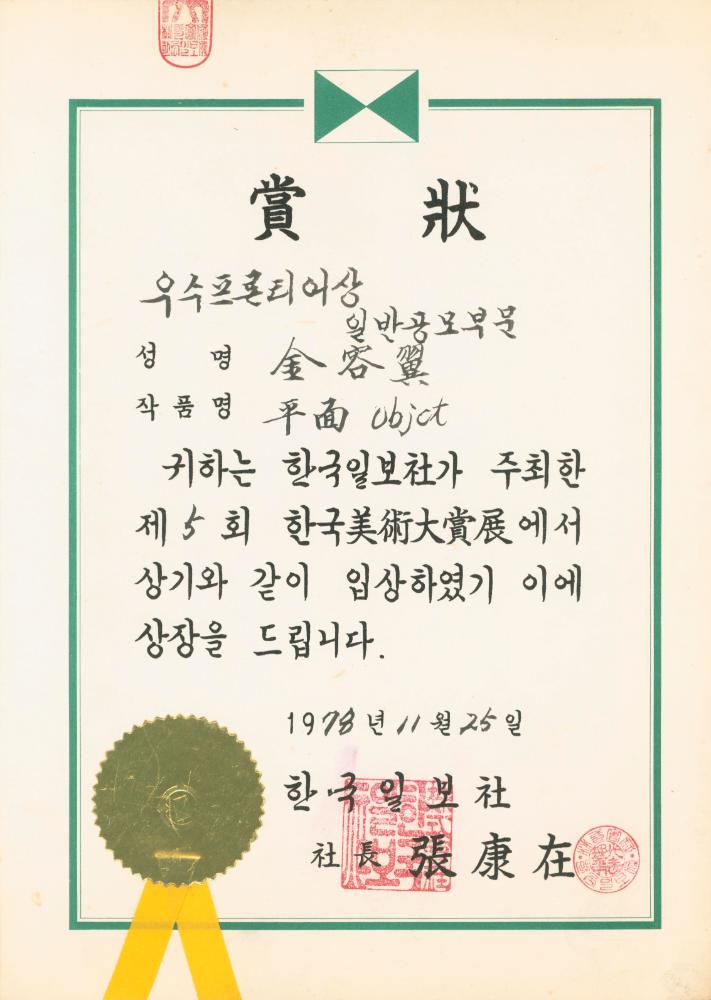 賞 狀
우수프론티어상
일반공모부문
성 명 金容翼
작품명 平面 Objct
귀하는 한국일보社가 주최한
제5회 한국美術大賞展에서
상기와 같이 입상하였기 이에
상장을 드립니다.
1978년 11월 25일
한국일보社
社長 張康在